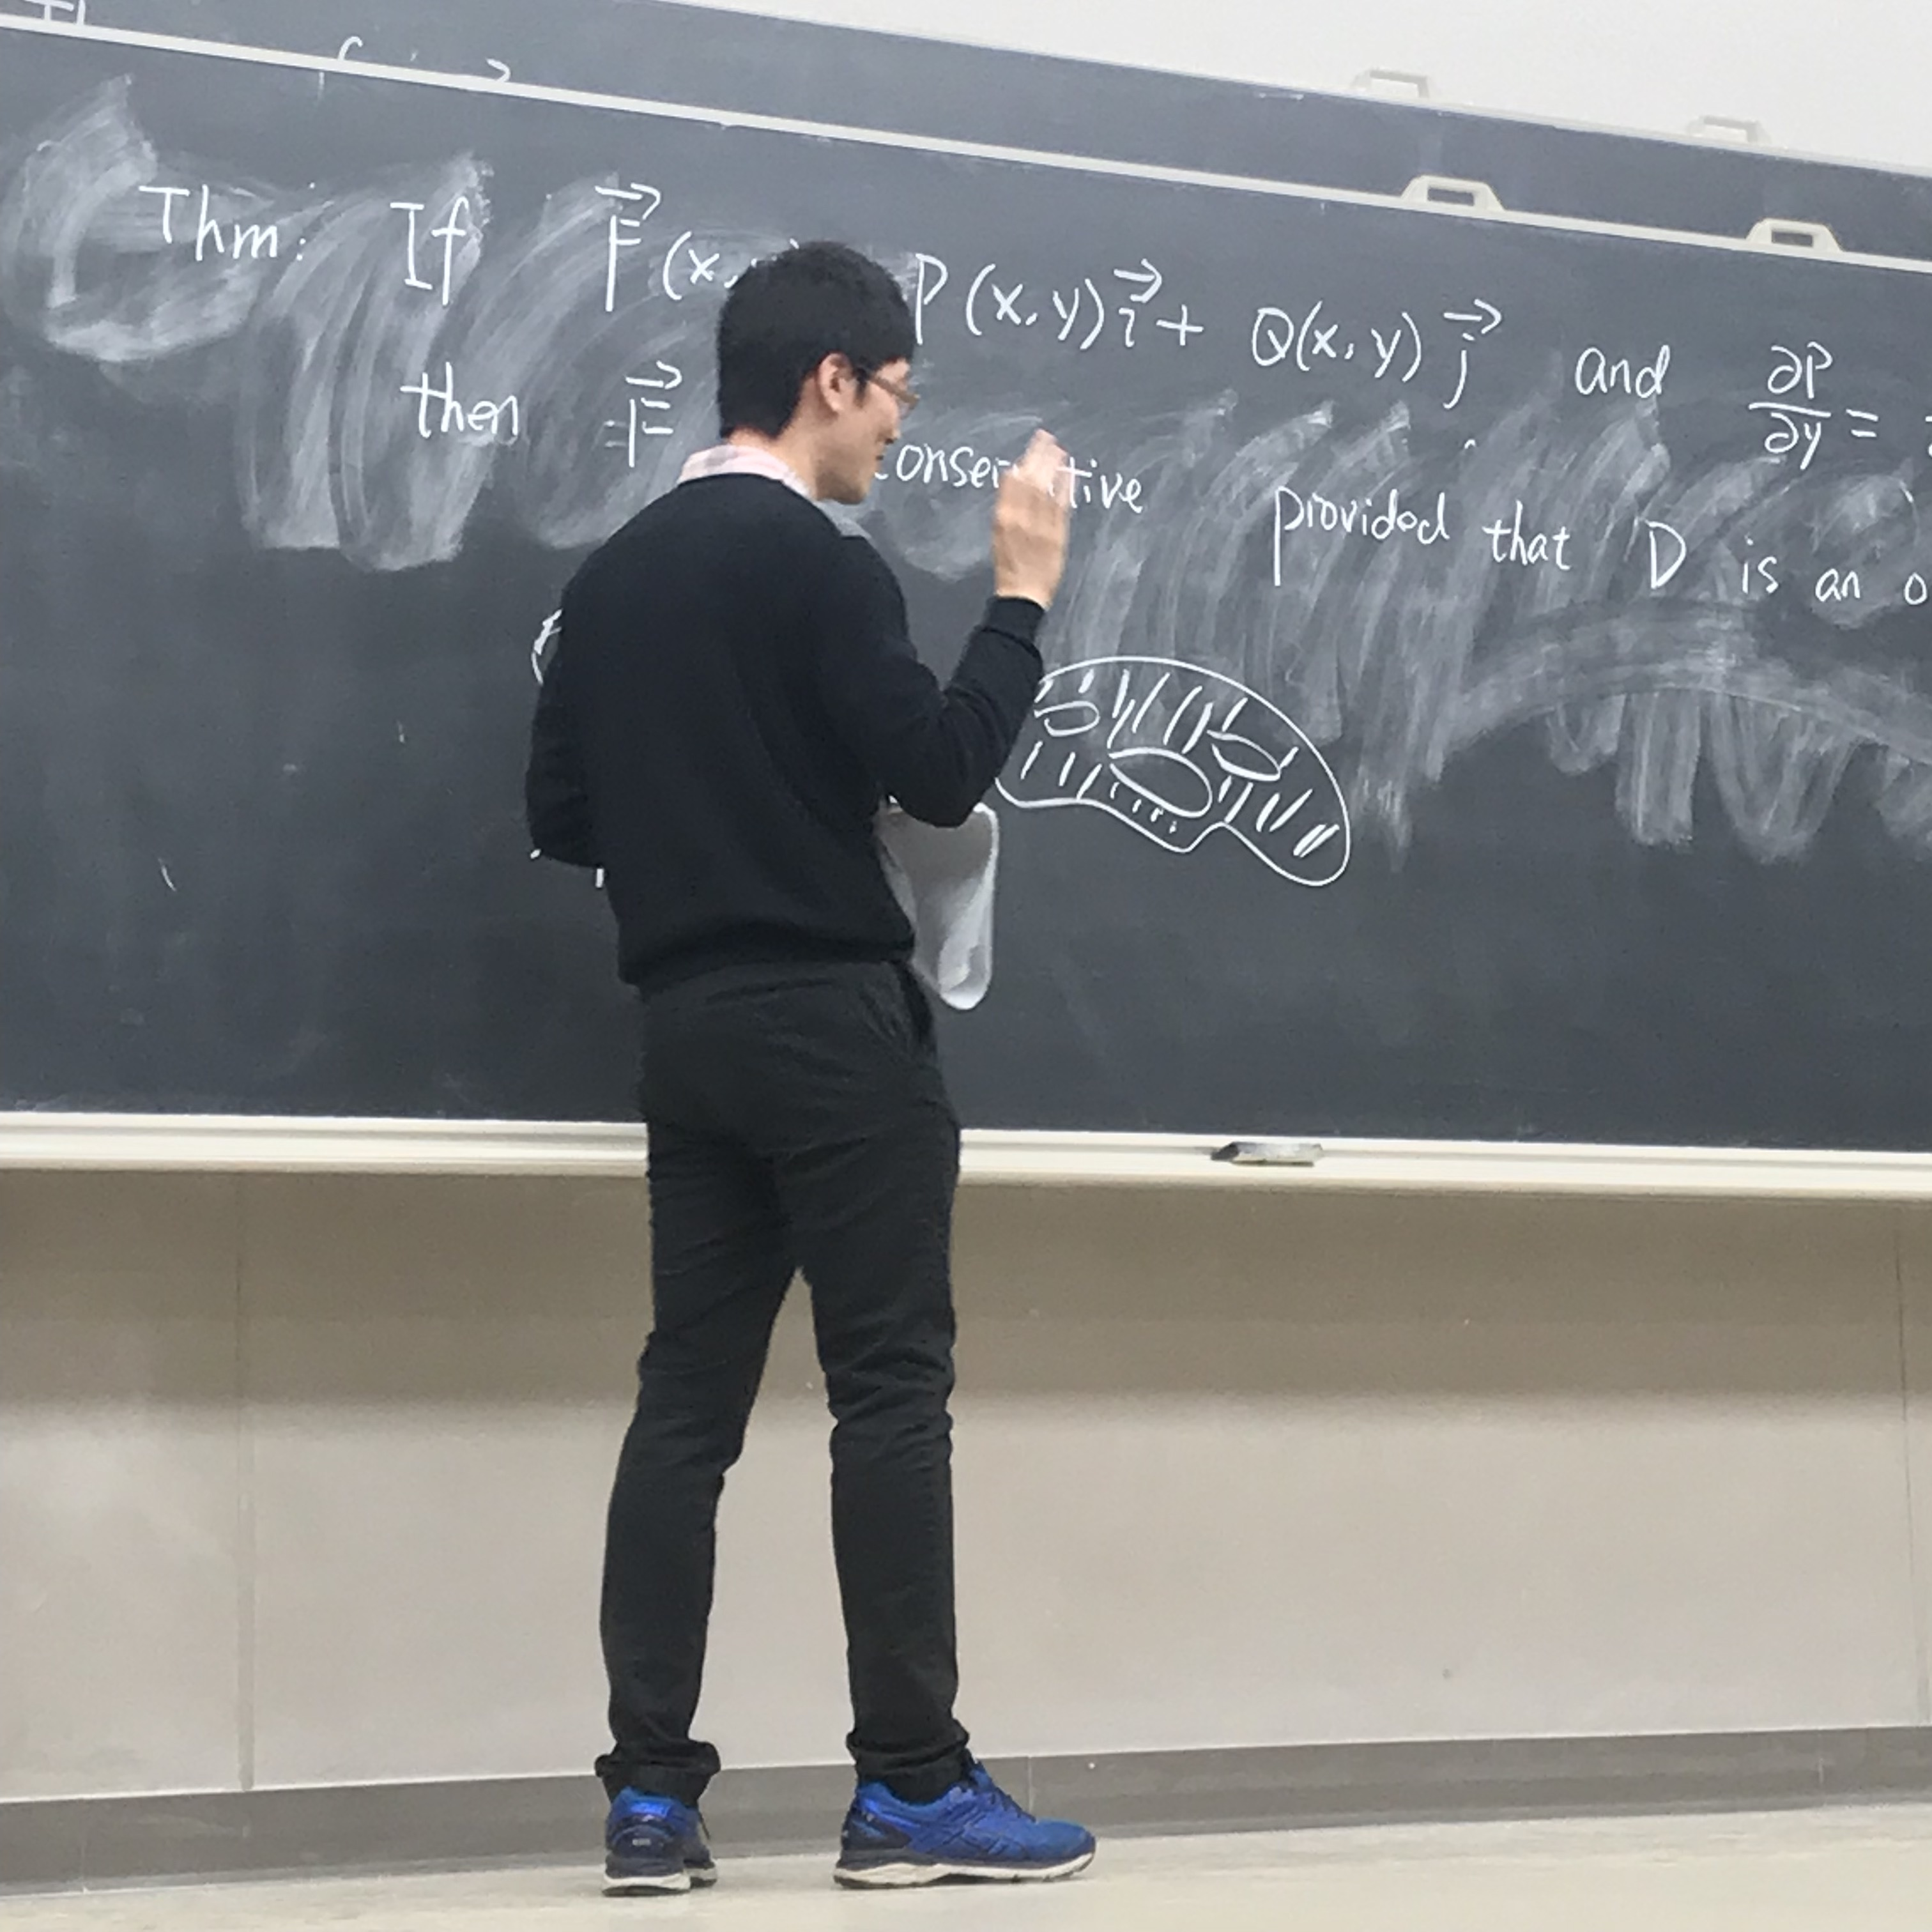 Thm: If F⃗ (x, P(x,y) i⃗ + Q(x,y) j⃗ and ∂P/∂y =
then F⃗ conservative provided that D is an